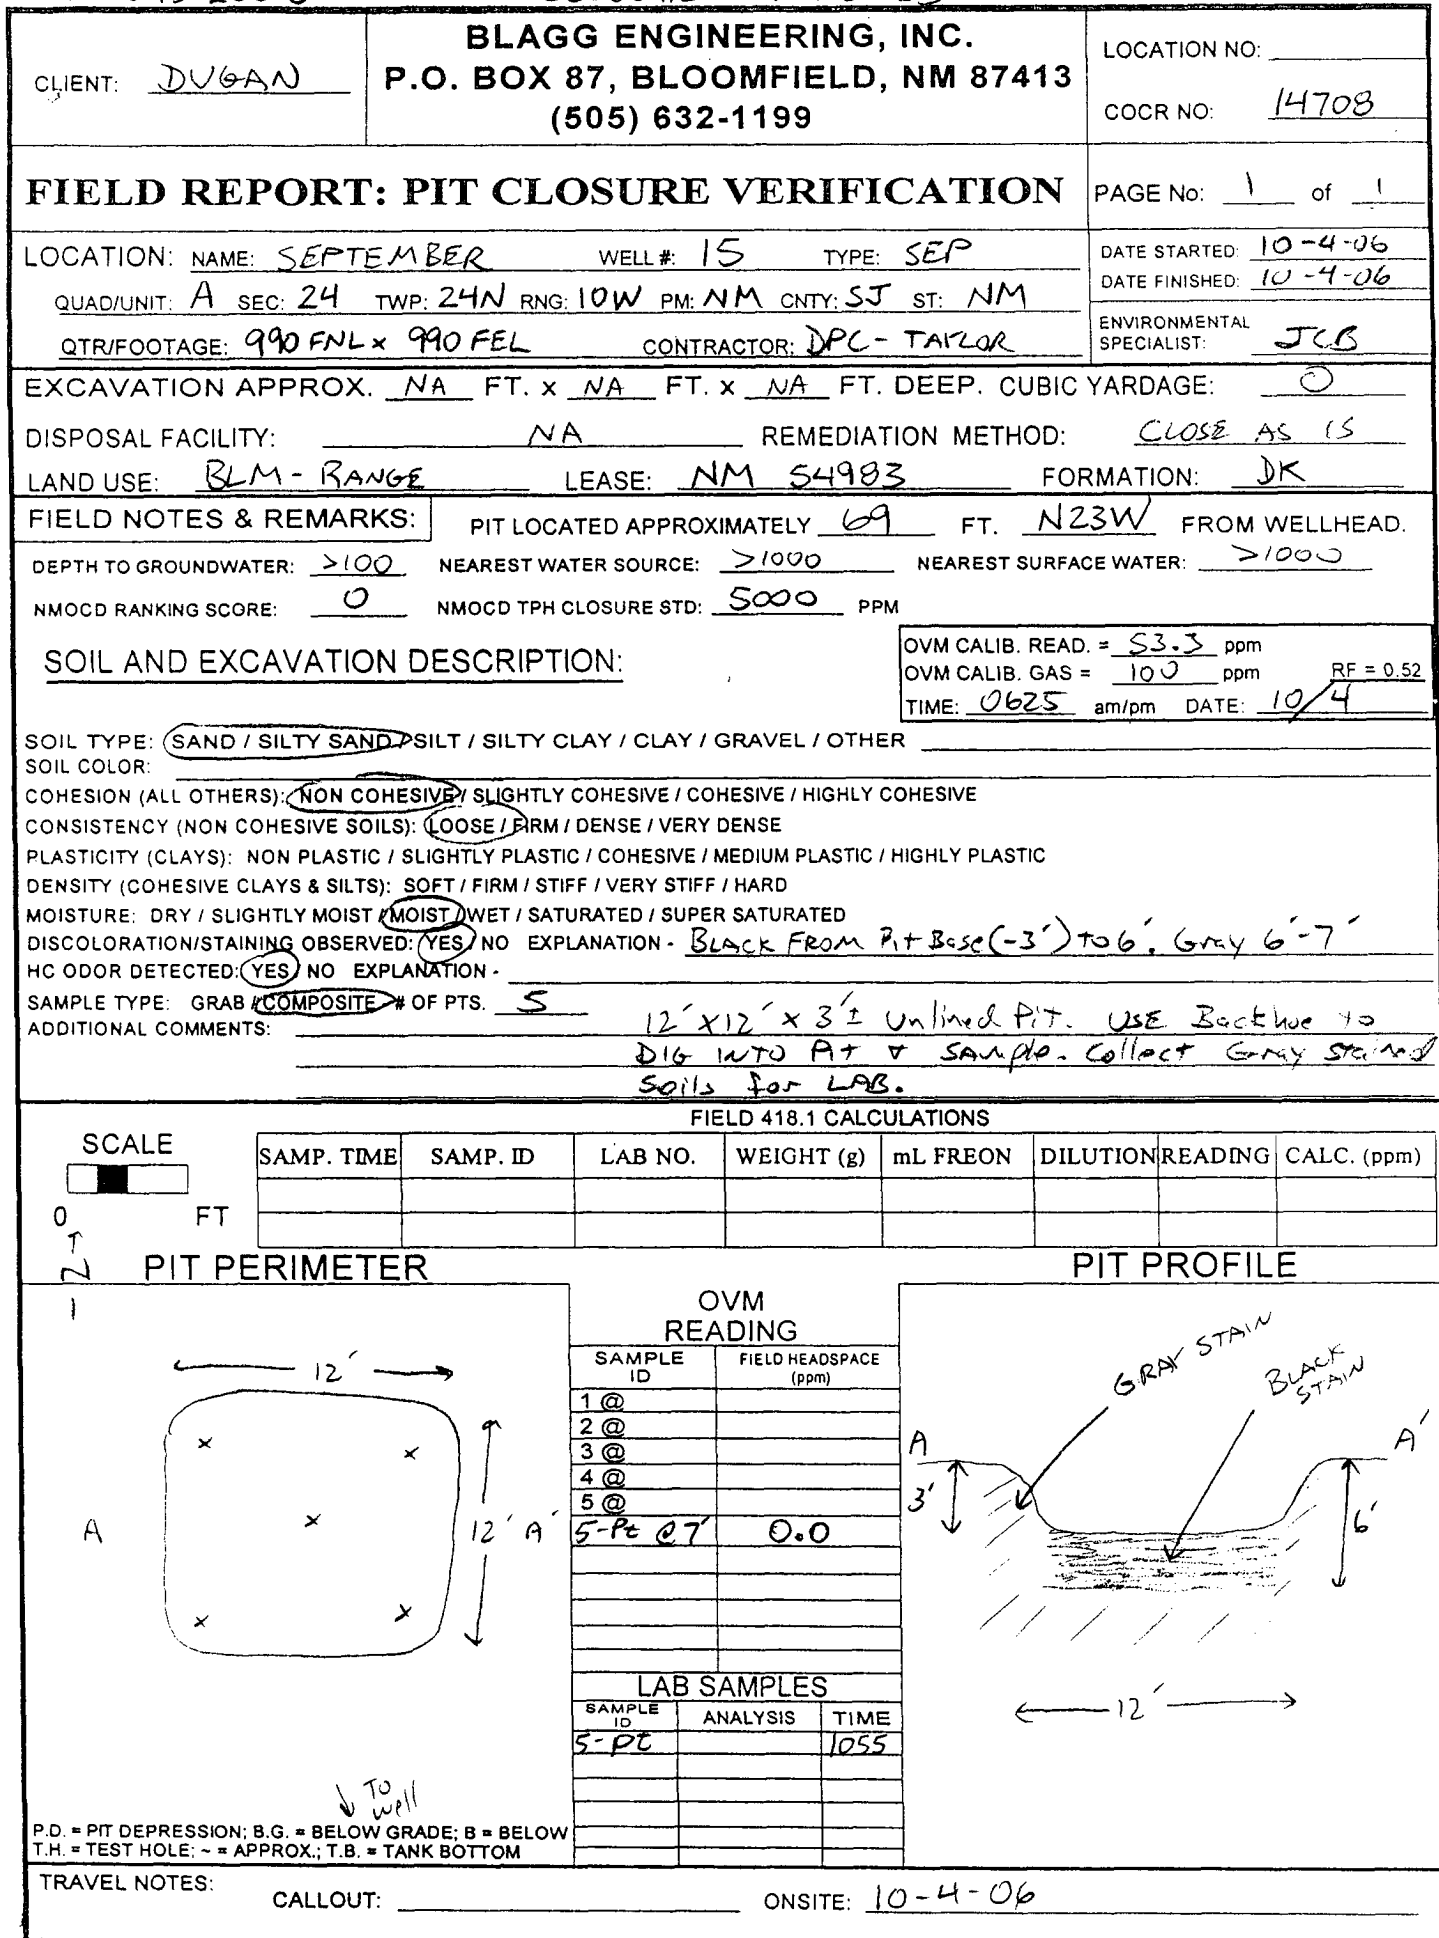 BLAGG ENGINEERING, INC.
P.O. BOX 87, BLOOMFIELD, NM 87413
(505) 632-1199
CLIENT: DUGAN
LOCATION NO:
COCR NO: 14708
FIELD REPORT: PIT CLOSURE VERIFICATION
PAGE No: 1 of 1
LOCATION: NAME: SEPTEMBER WELL #: 15 TYPE: SEP
QUAD/UNIT: A SEC: 24 TWP: 24N RNG: 10W PM: NM CNTY: SJ ST: NM
QTR/FOOTAGE: 990 FNL x 990 FEL CONTRACTOR: DPC - TAYLOR
DATE STARTED: 10-4-06
DATE FINISHED: 10-4-06
ENVIRONMENTAL
SPECIALIST: JCB
EXCAVATION APPROX. NA FT. x NA FT. x NA FT. DEEP. CUBIC YARDAGE: 0
DISPOSAL FACILITY: NA REMEDIATION METHOD: CLOSE AS IS
LAND USE: BLM - RANGE LEASE: NM 54983 FORMATION: DK
FIELD NOTES & REMARKS: PIT LOCATED APPROXIMATELY 69 FT. N23W FROM WELLHEAD.
DEPTH TO GROUNDWATER: >100 NEAREST WATER SOURCE: >1000 NEAREST SURFACE WATER: >1000
NMOCD RANKING SCORE: 0 NMOCD TPH CLOSURE STD: 5000 PPM
SOIL AND EXCAVATION DESCRIPTION:
OVM CALIB. READ. = 53.3 ppm
OVM CALIB. GAS = 100 ppm RF = 0.52
TIME: 0625 am/pm DATE: 10/4
SOIL TYPE: SAND / SILTY SAND / SILT / SILTY CLAY / CLAY / GRAVEL / OTHER
SOIL COLOR:
COHESION (ALL OTHERS): NON COHESIVE / SLIGHTLY COHESIVE / COHESIVE / HIGHLY COHESIVE
CONSISTENCY (NON COHESIVE SOILS): LOOSE / FIRM / DENSE / VERY DENSE
PLASTICITY (CLAYS): NON PLASTIC / SLIGHTLY PLASTIC / COHESIVE / MEDIUM PLASTIC / HIGHLY PLASTIC
DENSITY (COHESIVE CLAYS & SILTS): SOFT / FIRM / STIFF / VERY STIFF / HARD
MOISTURE: DRY / SLIGHTLY MOIST / MOIST / WET / SATURATED / SUPER SATURATED
DISCOLORATION/STAINING OBSERVED: YES / NO EXPLANATION - BLACK FROM Pit Base (-3') TO 6'. Gray 6'-7'
HC ODOR DETECTED: YES / NO EXPLANATION -
SAMPLE TYPE: GRAB / COMPOSITE # OF PTS. 5
ADDITIONAL COMMENTS: 12' x 12' x 3'± Unlined Pit. USE Backhoe to
DIG INTO Pit & SAMPle. Collect Gray Stained
Soils for LAB.
FIELD 418.1 CALCULATIONS
SCALE
0 FT
SAMP. TIME SAMP. ID LAB NO. WEIGHT (g) mL FREON DILUTION READING CALC. (ppm)
N
PIT PERIMETER
PIT PROFILE
OVM
READING
SAMPLE ID FIELD HEADSPACE (ppm)
1 @
2 @
3 @
4 @
5 @
5-Pt @ 7' 0.0
LAB SAMPLES
SAMPLE ID ANALYSIS TIME
5-pt 1055
12'
A
12' A'
To
well
GRAY STAIN
BLACK
STAIN
A
A'
3'
6'
12'
P.D. = PIT DEPRESSION; B.G. = BELOW GRADE; B = BELOW
T.H. = TEST HOLE; ~ = APPROX.; T.B. = TANK BOTTOM
TRAVEL NOTES:
CALLOUT: ONSITE: 10-4-06